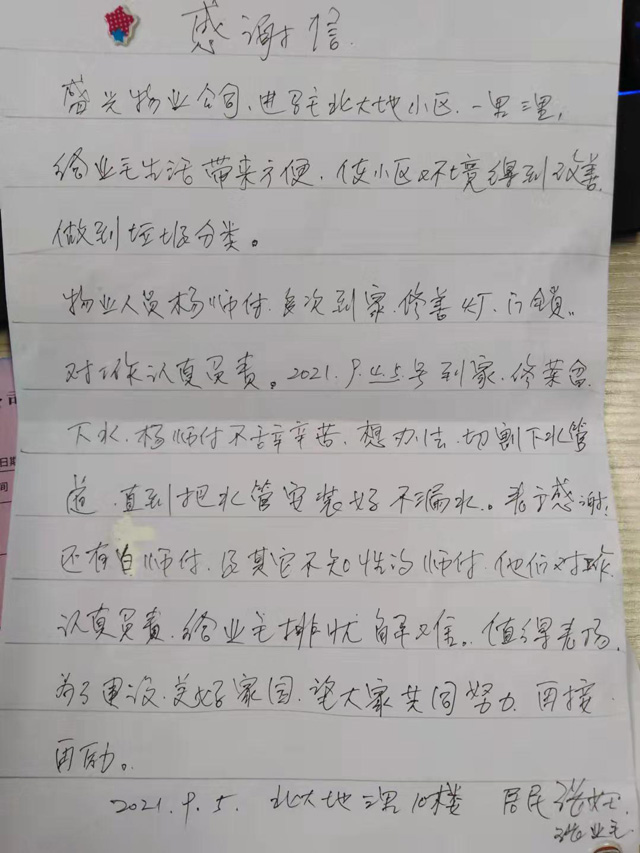 感谢信
盛兴物业公司、进驻北大地小区、一里 三里,
给业主生活 带来方便、使小区环境得到改善
做到垃圾分类。
物业人员杨师付、多次到家、修善灯、门锁..
对工作认真负责。2021.9.4.5.号到家、修菜盆
下水、杨师付不舍辛苦、想办法、切割下水管
道、直到把水管安装好不漏水。表示感谢,
还有白师付、及其它不知性的师付、他们对工作
认真负责、给业主排忧解难。值得表扬.
为了建设、美好家园、望大家共同努力 再接
再励。
2021.9.5. 北大地三里10楼 居民张
张业主